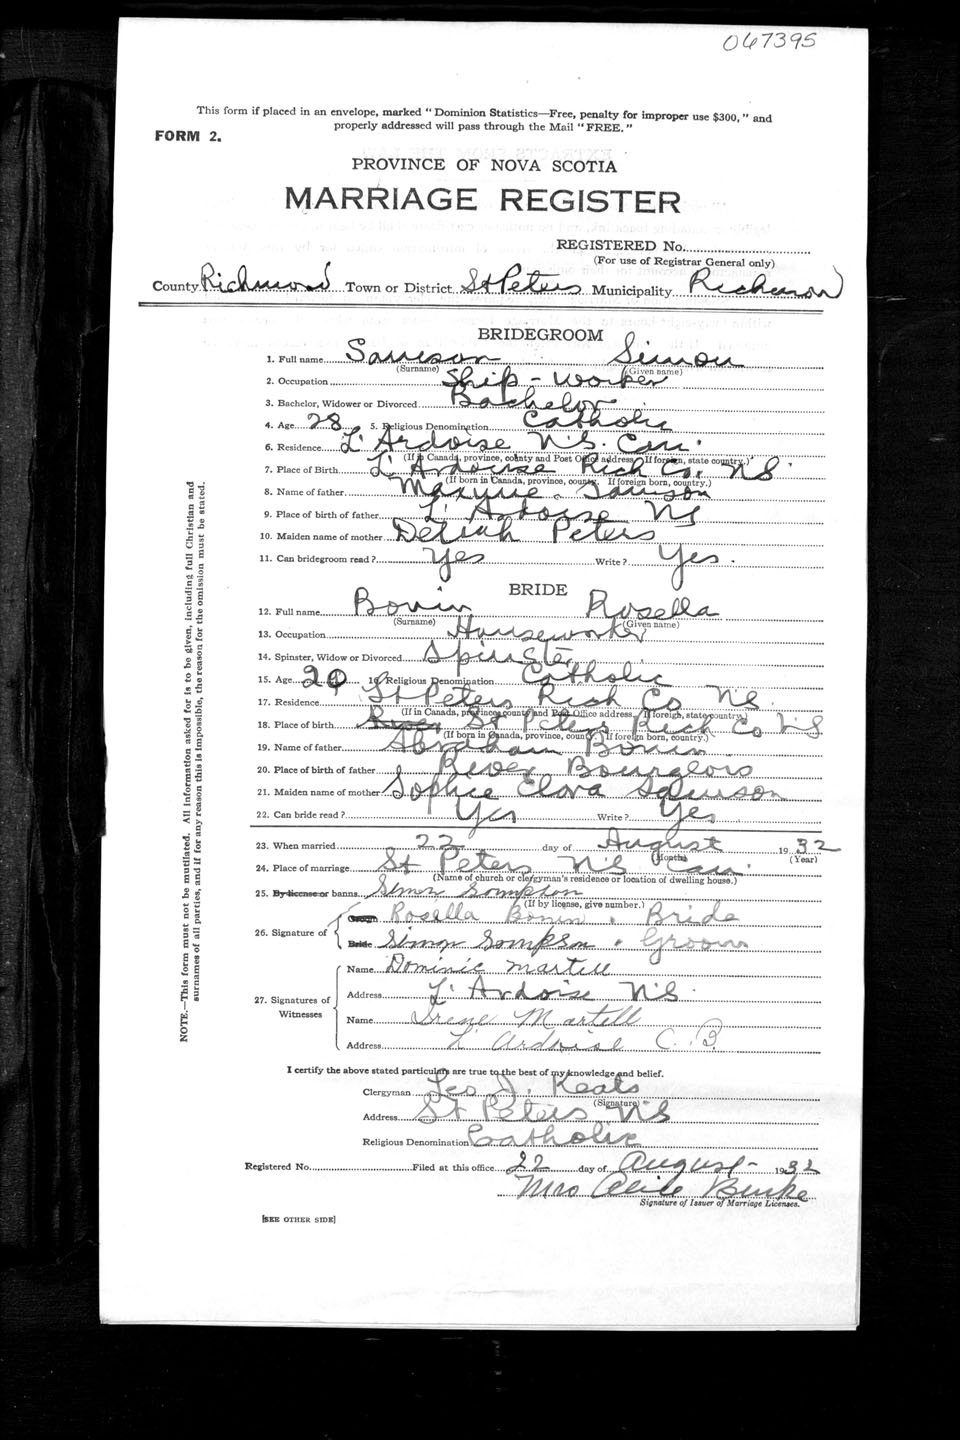 067395
This form if placed in an envelope, marked "Dominion Statistics—Free, penalty for improper use $300," and
properly addressed will pass through the Mail "FREE."
FORM 2.
PROVINCE OF NOVA SCOTIA
MARRIAGE REGISTER
REGISTERED No.
(For use of Registrar General only)
County Richmond Town or District St Peters Municipality Richmond
BRIDEGROOM
1. Full name Samson Simon
(Surname) (Given name)
2. Occupation Ship-worker
3. Bachelor, Widower or Divorced Bachelor
4. Age 28 5. Religious Denomination Catholic
6. Residence L'Ardoise N.S. Can.
(If in Canada, province, county and Post Office address. If foreign, state country.)
7. Place of Birth L'Ardoise Rich Co. NS.
(If born in Canada, province, county. If foreign born, country.)
8. Name of father Samson
9. Place of birth of father L'Ardoise NS
10. Maiden name of mother Deliah Peters
11. Can bridegroom read? Yes Write? Yes.
BRIDE
12. Full name Bonin Rosella
(Surname) (Given name)
13. Occupation Houseworker
14. Spinster, Widow or Divorced Spinster
15. Age 20 16. Religious Denomination Catholic
17. Residence St Peters Rich Co NS.
(If in Canada, province, county and Post Office address. If foreign, state country.)
18. Place of birth River St Peters Rich Co NS
(If born in Canada, province, county. If foreign born, country.)
19. Name of father Abraham Bonin
20. Place of birth of father River Bourgeois
21. Maiden name of mother Sophie Elora Samson
22. Can bride read? Yes Write? Yes
23. When married 22 day of August 1932
(Month) (Year)
24. Place of marriage St Peters N.S Can.
(Name of church or clergyman's residence or location of dwelling house.)
25. By license or banns Simon Sompson
(If by license, give number.)
26. Signature of Groom Rosella Bonin. Bride
Bride Simon Sompson. Groom
27. Signatures of Witnesses
Name Dominic Martell
Address L'Ardoise N.S.
Name Irene Martell
Address L'Ardoise C.B.
I certify the above stated particulars are true to the best of my knowledge and belief.
Clergyman Leo J. Keats
(Signature)
Address St Peters NS
Religious Denomination Catholic
Registered No. Filed at this office 22 day of August 1932
Mrs Burke
Signature of Issuer of Marriage Licenses.
[SEE OTHER SIDE]
NOTE.—This form must not be mutilated. All information asked for is to be given, including full Christian and
surnames of all parties, and if for any reason this is impossible, the reason for the omission must be stated.